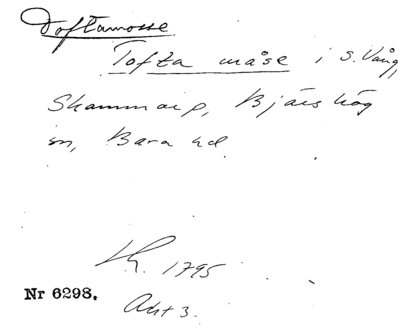 Toftamosse
Tofta måse i S. Vång,
Skammarp, Bjärshög
sn, Bara hd
Lk. 1795
Nr 6298.
Akt 3.